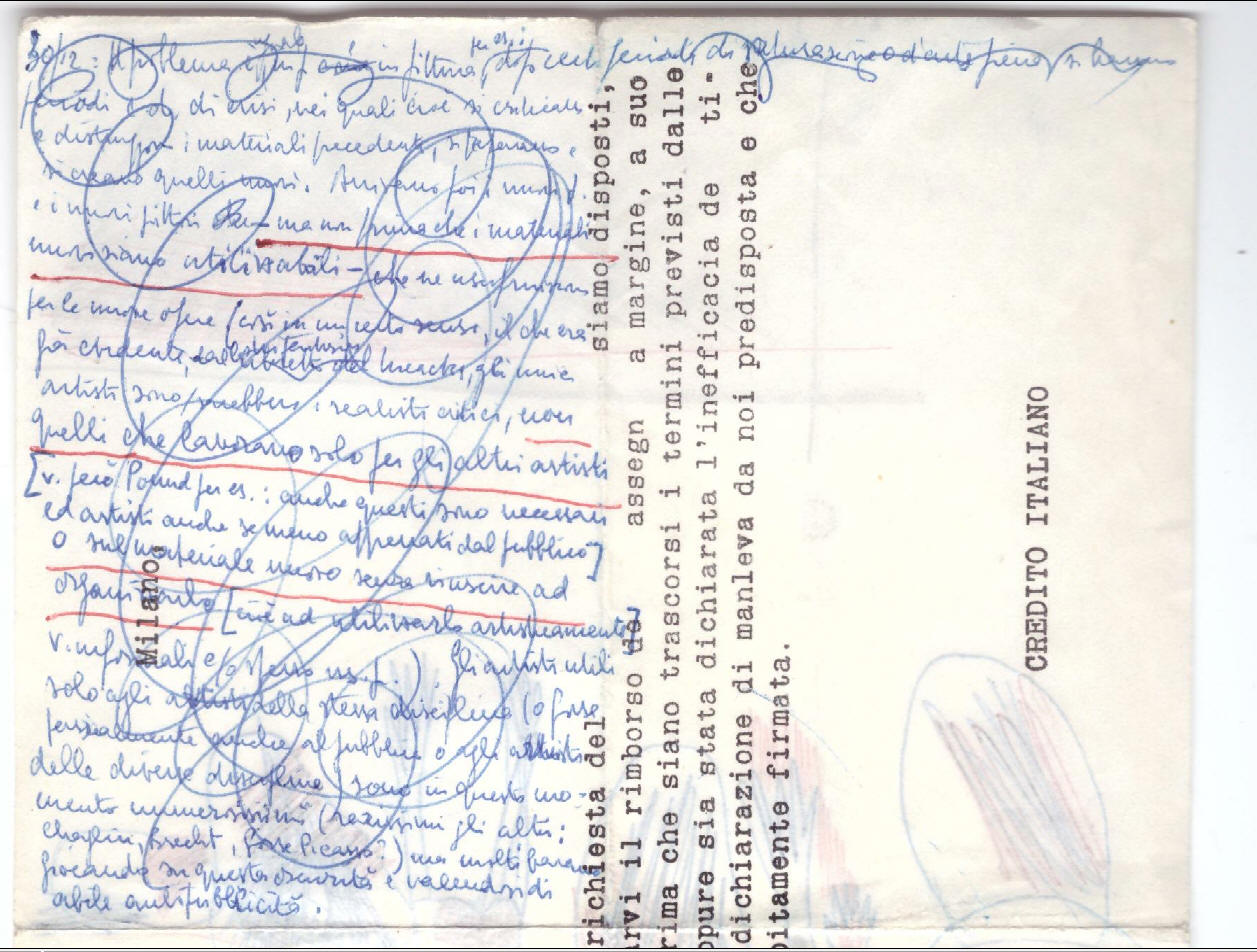 30/12: Il problema è in pittura, dopo certi periodi di si hanno
periodi di crisi, nei quali cioè si criticano
e distruggono i materiali precedenti, si preparano e
si creano quelli nuovi. Arrivano poi i nuovi
e i nuovi pittori – ma non prima che i materiali
nuovi siano utilizzabili – che ne usufruiscono
per le nuove opere (così in un certo senso, il che era
già evidente, gli unici
artisti sono sarebbero i realisti critici, non
quelli che lavorano solo per gli altri artisti
[v. però Pound per es.: anche questi sono necessari
ed artisti anche se meno apprezzati dal pubblico]
o sul materiale nuovo senza riuscire ad
organizzarlo [cioè ad utilizzarlo artisticamente]
v. informali e lo stesso ). Gli artisti utili
solo agli artisti della stessa disciplina (o forse
parzialmente anche al pubblico o agli artisti
delle diverse discipline) sono in questo mo-
mento numerosissimi (rarissimi gli altri:
Chaplin, Brecht, forse Picasso?) ma molti
giocando su questa oscurità e valendosi di
abile antipubblicità.
Milano,
richiesta del siamo disposti,
arvi il rimborso de assegn a margine, a suo
rima che siano trascorsi i termini previsti dalle
ppure sia stata dichiarata l'inefficacia de ti-
dichiarazione di manleva da noi predisposta e che
bitamente firmata.
CREDITO ITALIANO